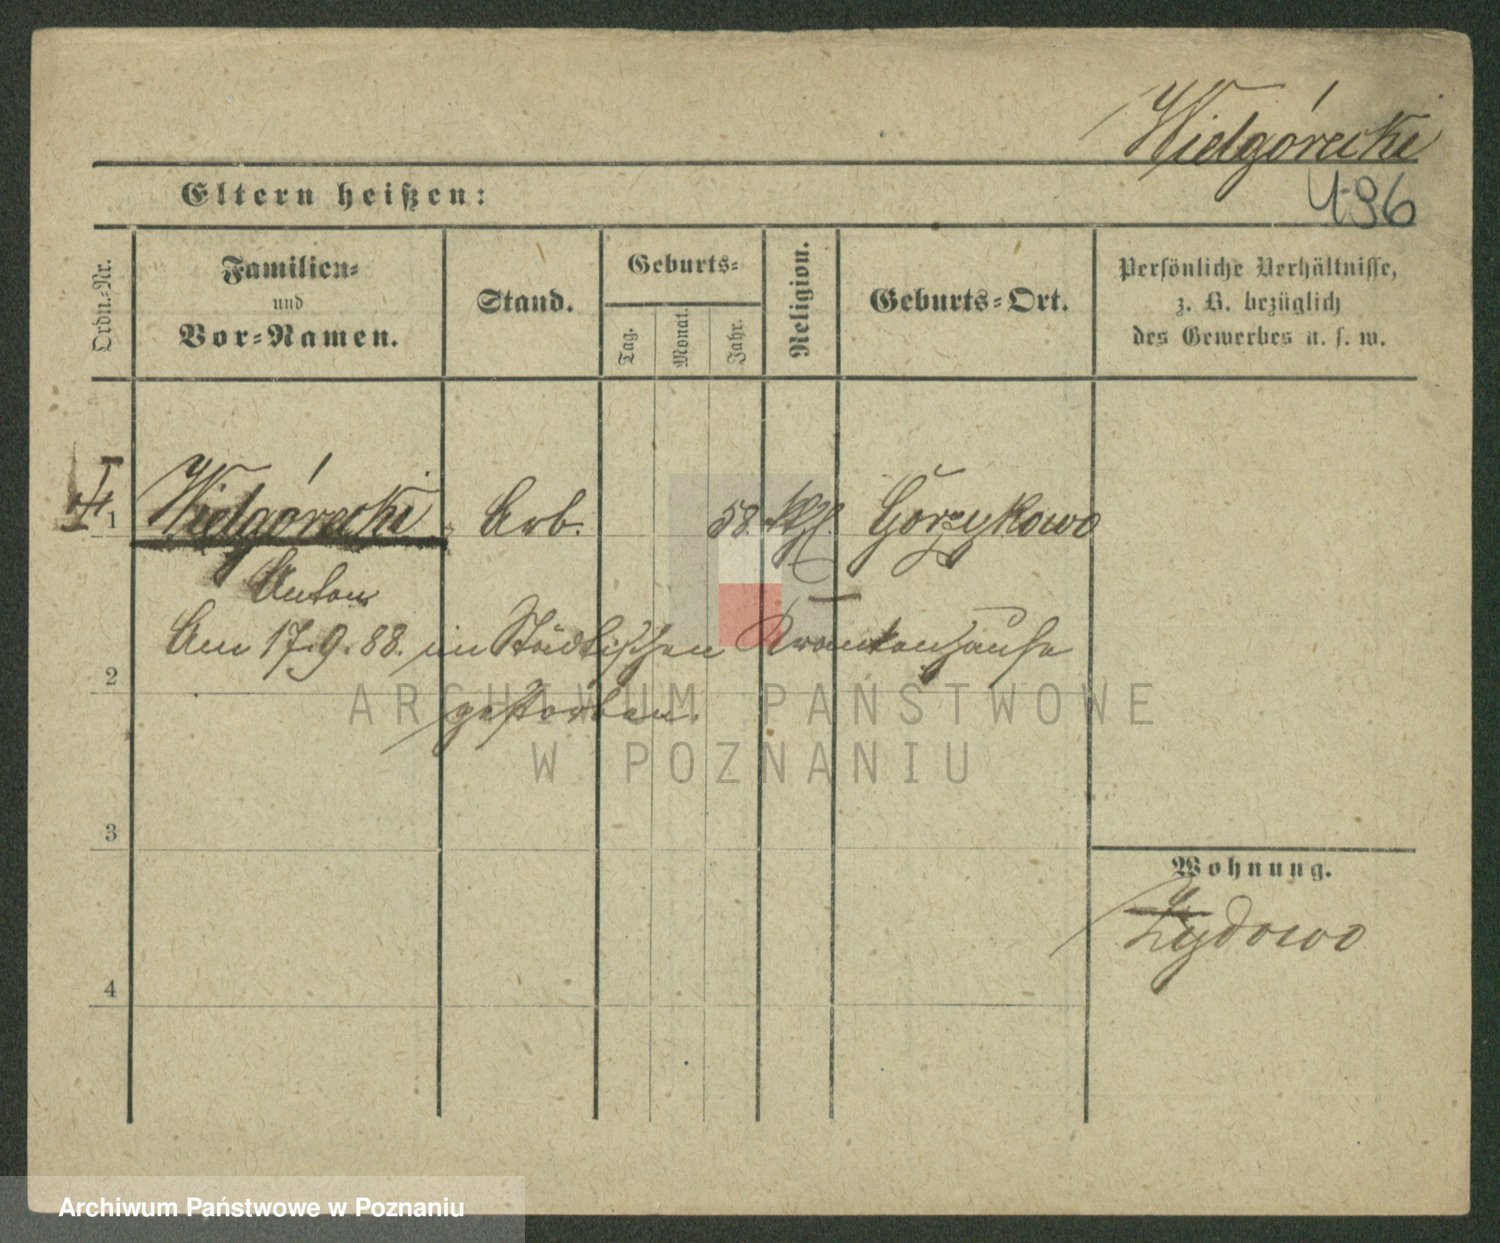 Wielgórecki
496
Eltern heißen:
Ordn.-Nr.
Familien-
und
Vor-Namen.
Stand.
Geburts-
Tag.
Monat.
Jahr.
Religion.
Geburts-Ort.
Persönliche Verhältnisse,
z. B. bezüglich
des Gewerbes u. s. w.
1 Wielgórecki Arb. 58. kth. Gorzykowo
Anton
Am 17.9.88. im Städtischen Krankenhause
2
gestorben.
ARCHIWUM PAŃSTWOWE
W POZNANIU
3
Wohnung.
Zydowo
4
Archiwum Państwowe w Poznaniu